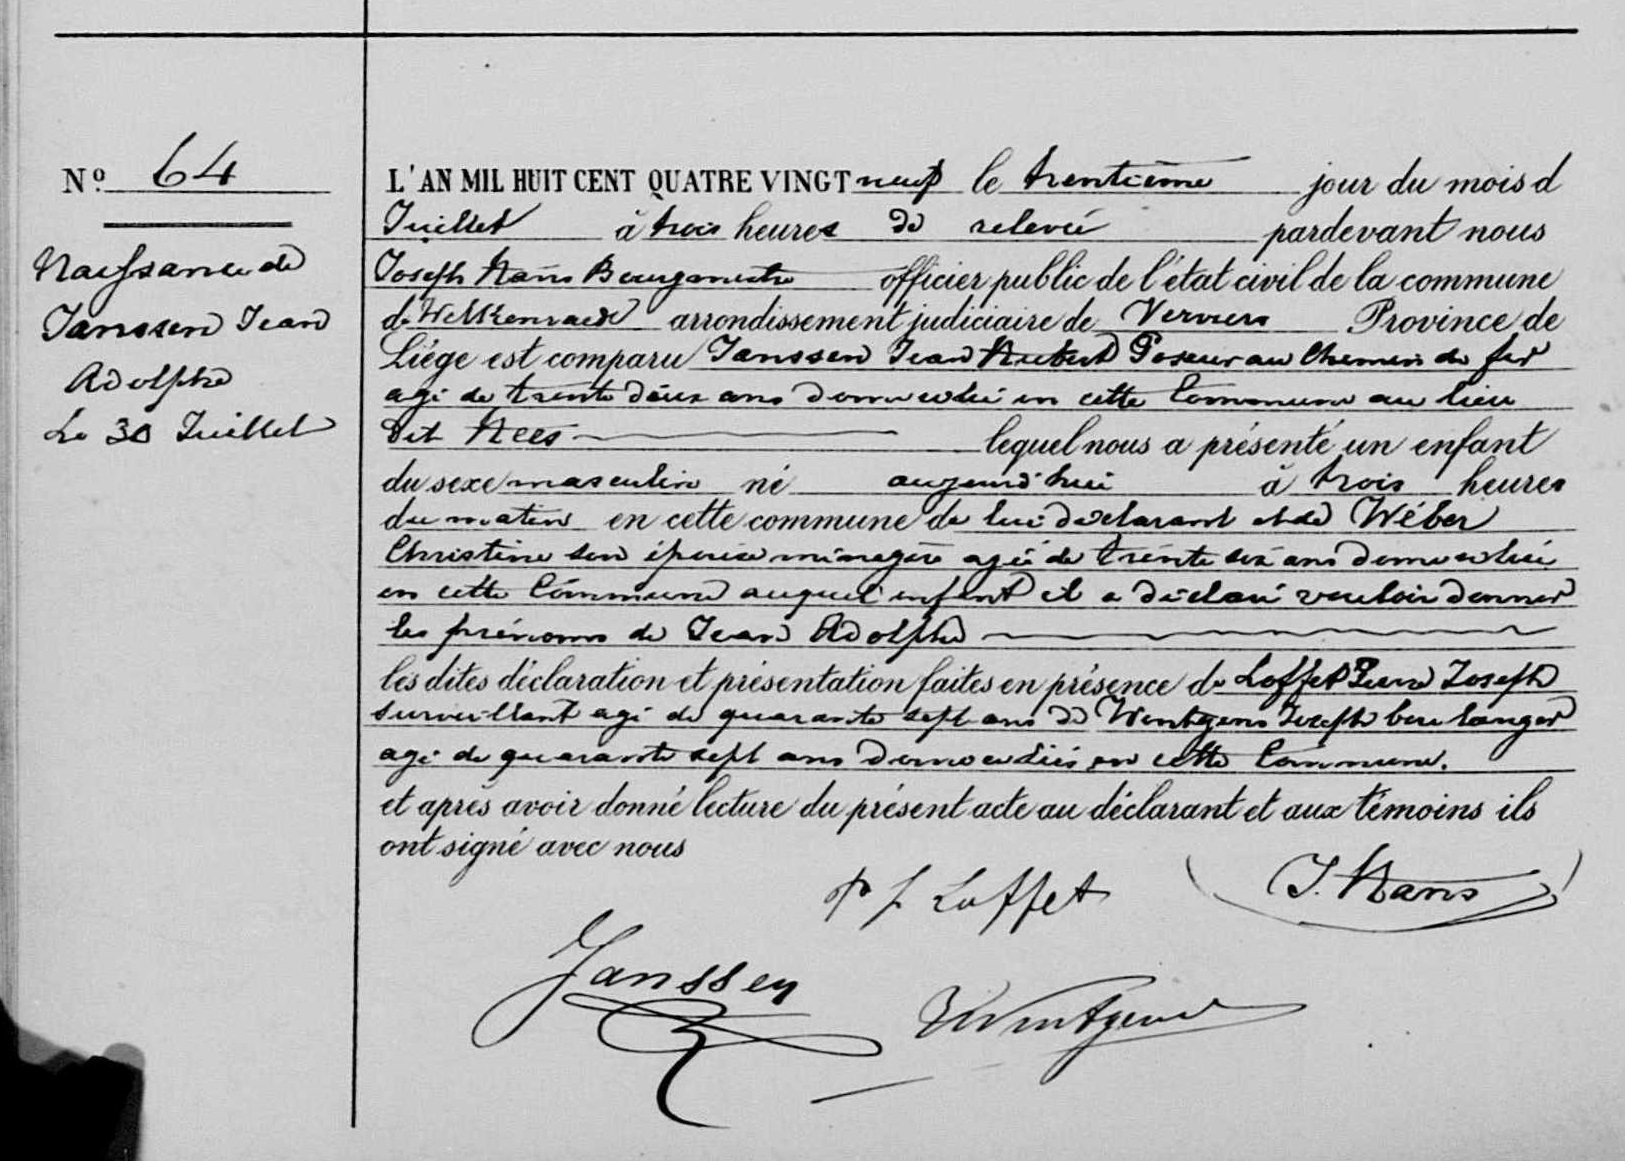 Nº 64
Naissance de
Janssen Jean
Adolphe
Le 30 Juillet
L'AN MIL HUIT CENT QUATRE VINGT neuf le trentième jour du mois d
Juillet à trois heures de relevée pardevant nous
Joseph Hans Bourgmestre officier public de l'état civil de la commune
de Welkenraedt arrondissement judiciaire de Verviers Province de
Liége est comparu Janssen Jean Hubert Poseur au Chemin de fer
agé de trente deux ans domicilié en cette Commune au lieu
dit Hees lequel nous a présenté un enfant
du sexe masculin né aujourd'hui à trois heures
du matin en cette commune de lui déclarant et de Wéber
Christine son épouse ménagère agée de trente six ans domiciliée
en cette Commune auquel enfant il a déclaré vouloir donner
les prénoms de Jean Adolphe
les dites déclaration et présentation faites en présence de Loffet Pierre Joseph
surveillant agé de quarante sept ans de Wintgens Joseph boulanger
agé de quarante sept ans domiciliés en cette Commune.
et après avoir donné lecture du présent acte au déclarant et aux témoins ils
ont signé avec nous
P J Loffet
J. Hans
Janssen
Wintgens